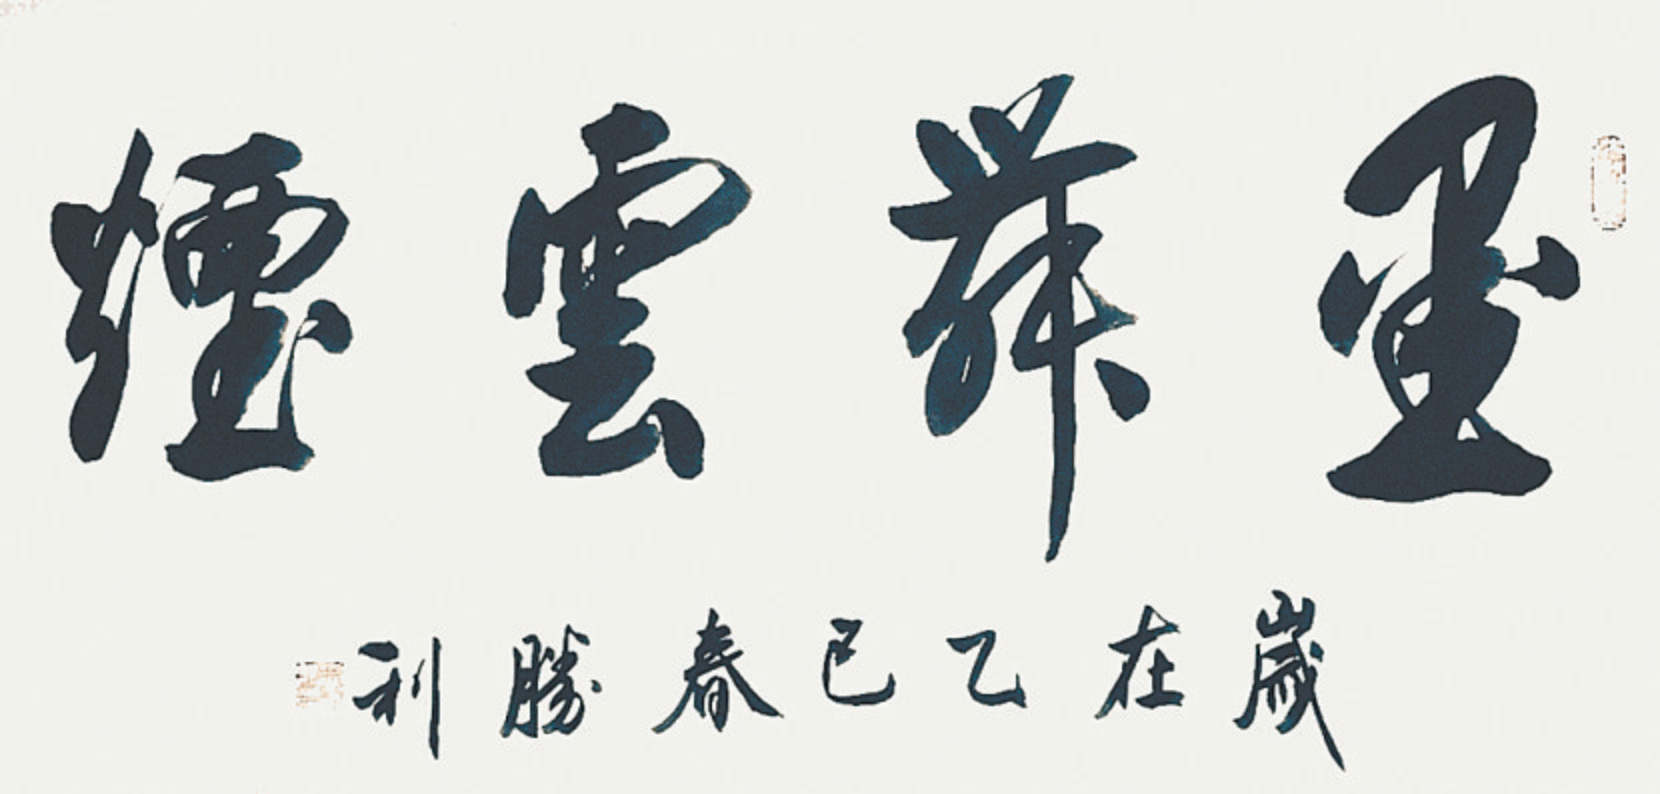 墨舞雲煙
歲在乙巳春勝利